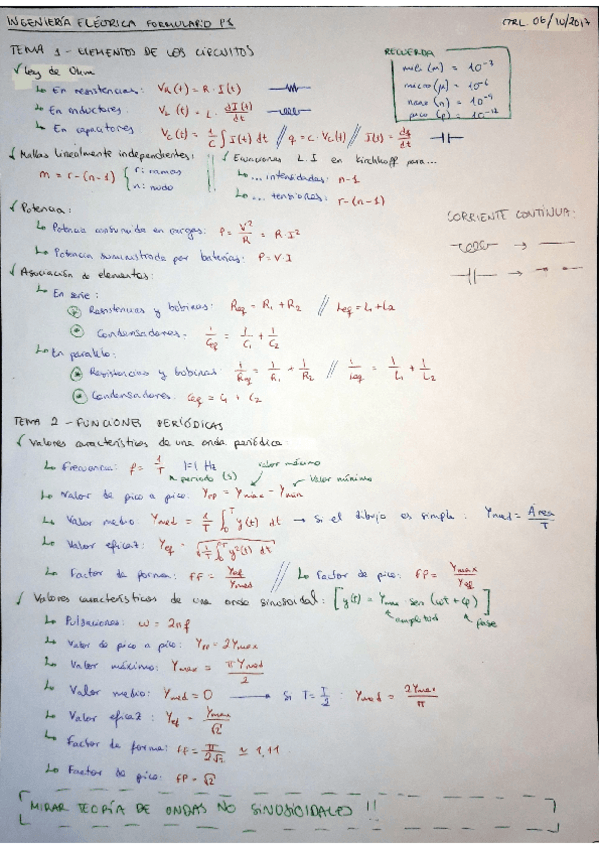 INGENIERÍA ELÉCTRICA FORMULARIO P1
CTRL 06/10/2017
TEMA 1 - ELEMENTOS DE LOS CIRCUITOS
RECUERDA
mili (m) = 10⁻³
micro (μ) = 10⁻⁶
nano (n) = 10⁻⁹
pico (p) = 10⁻¹²
✓ Ley de Ohm
↳ En resistencias: V_R(t) = R · I(t)
↳ En inductores: V_L(t) = L · dI(t)/dt
↳ En capacitores V_C(t) = 1/C ∫ I(t) dt // q = C · V_C(t) // I(t) = dq/dt
✓ Mallas linealmente independientes:
m = r - (n-1) { r: ramas
n: nudo
✓ Ecuaciones L.I en Kirchhoff para...
↳ ... intensidades: n-1
↳ ... tensiones: r-(n-1)
✓ Potencia:
↳ Potencia consumida en cargas: P = V²/R = R·I²
↳ Potencia suministrada por baterías: P = V·I
CORRIENTE CONTINUA:
✓ Asociación de elementos:
↳ En serie:
Resistencias y bobinas: Req = R₁ + R₂ // Leq = L₁ + L₂
Condensadores: 1/Ceq = 1/C₁ + 1/C₂
↳ En paralelo:
Resistencias y bobinas: 1/Req = 1/R₁ + 1/R₂ // 1/Leq = 1/L₁ + 1/L₂
Condensadores: Ceq = C₁ + C₂
TEMA 2 - FUNCIONES PERIÓDICAS
✓ Valores característicos de una onda periódica
↳ Frecuencia: f = 1/T Hz
periodo (s)
valor máximo
valor mínimo
↳ Valor de pico a pico: Ypp = Ymax - Ymin
↳ Valor medio: Ymed = 1/T ∫₀ᵀ y(t) dt → Si el dibujo es simple: Ymed = Área/T
↳ Valor eficaz: Yef = √(1/T ∫₀ᵀ y²(t) dt)
↳ Factor de forma: FF = Yef/Ymed // ↳ Factor de pico: FP = Ymax/Yef
✓ Valores característicos de una onda sinosoidal: [y(t) = Ymax · sen (ωt + φ)]
amplitud
fase
↳ Pulsaciones: ω = 2πf
↳ Valor de pico a pico: Ypp = 2Ymax
↳ Valor máximo: Ymax = πYmed/2
↳ Valor medio: Ymed = 0 → Si T = T/2: Ymed = 2Ymax/π
↳ Valor eficaz: Yef = Ymax/√2
↳ Factor de forma: FF = π/2√2 ≃ 1,11
↳ Factor de pico: FP = √2
MIRAR TEORÍA DE ONDAS NO SINOSOIDALES !!